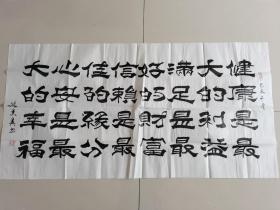 健康是最
大的利益
滿足是最
好的財富
信賴是最
佳的緣分
心安是最
大的幸福